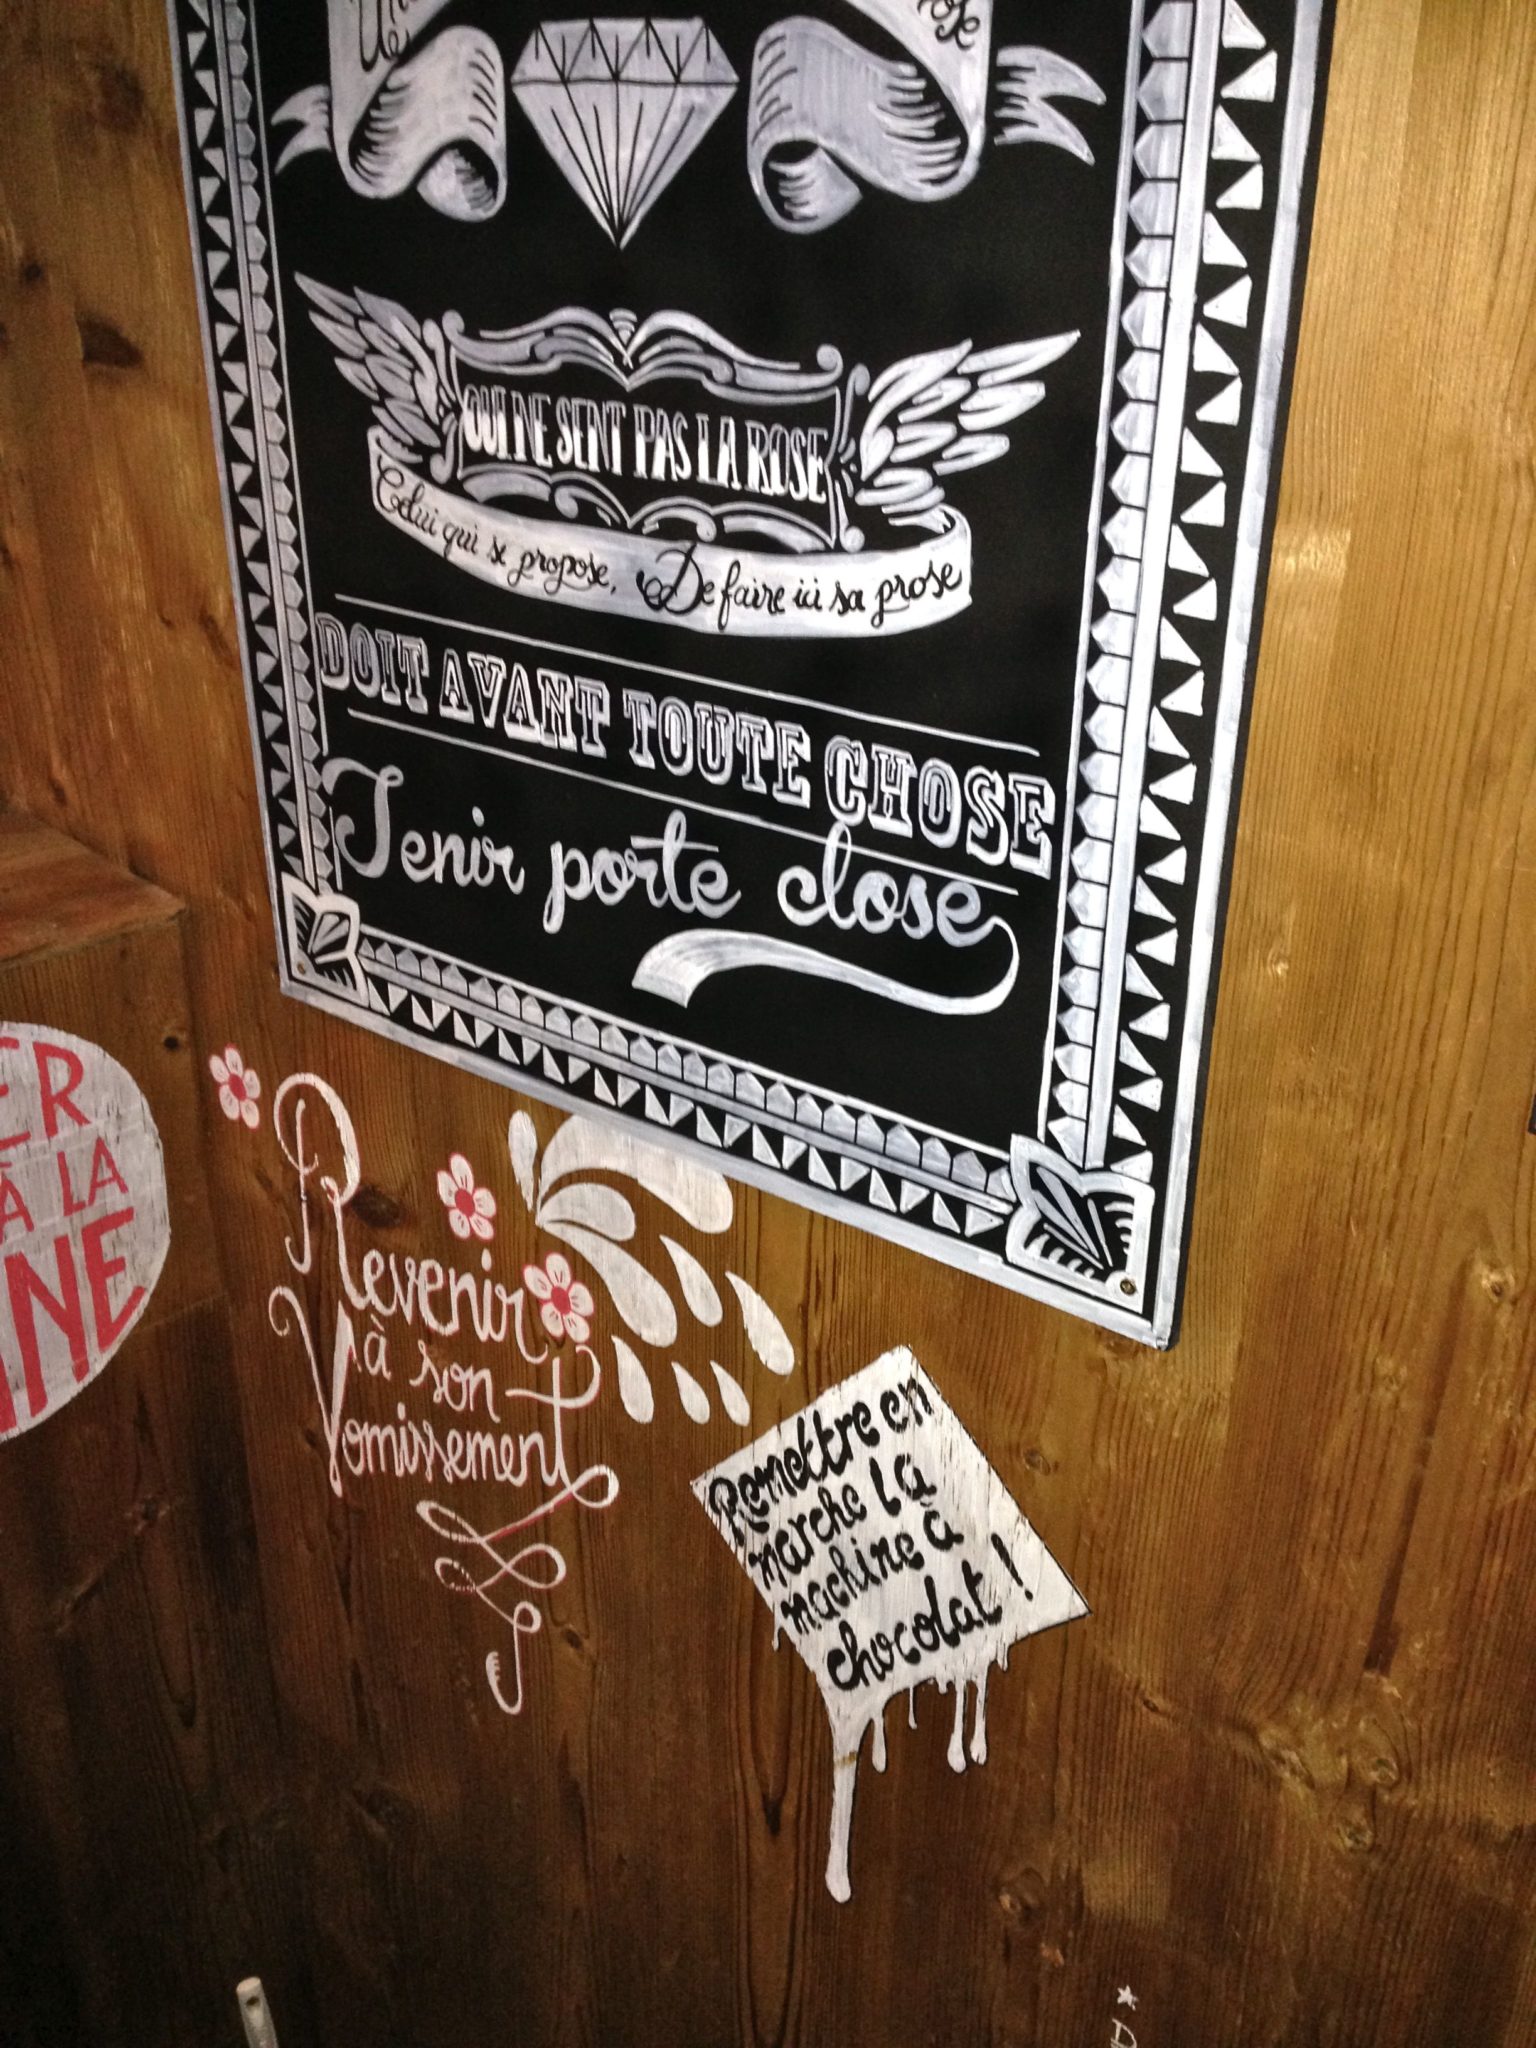 QUI NE SENT PAS LA ROSE
Celui qui se propose, De faire ici sa prose
DOIT AVANT TOUTE CHOSE
Tenir porte close
À LA
Revenir
à son
Vomissement
Remettre en
marche la
machine à
chocolat !